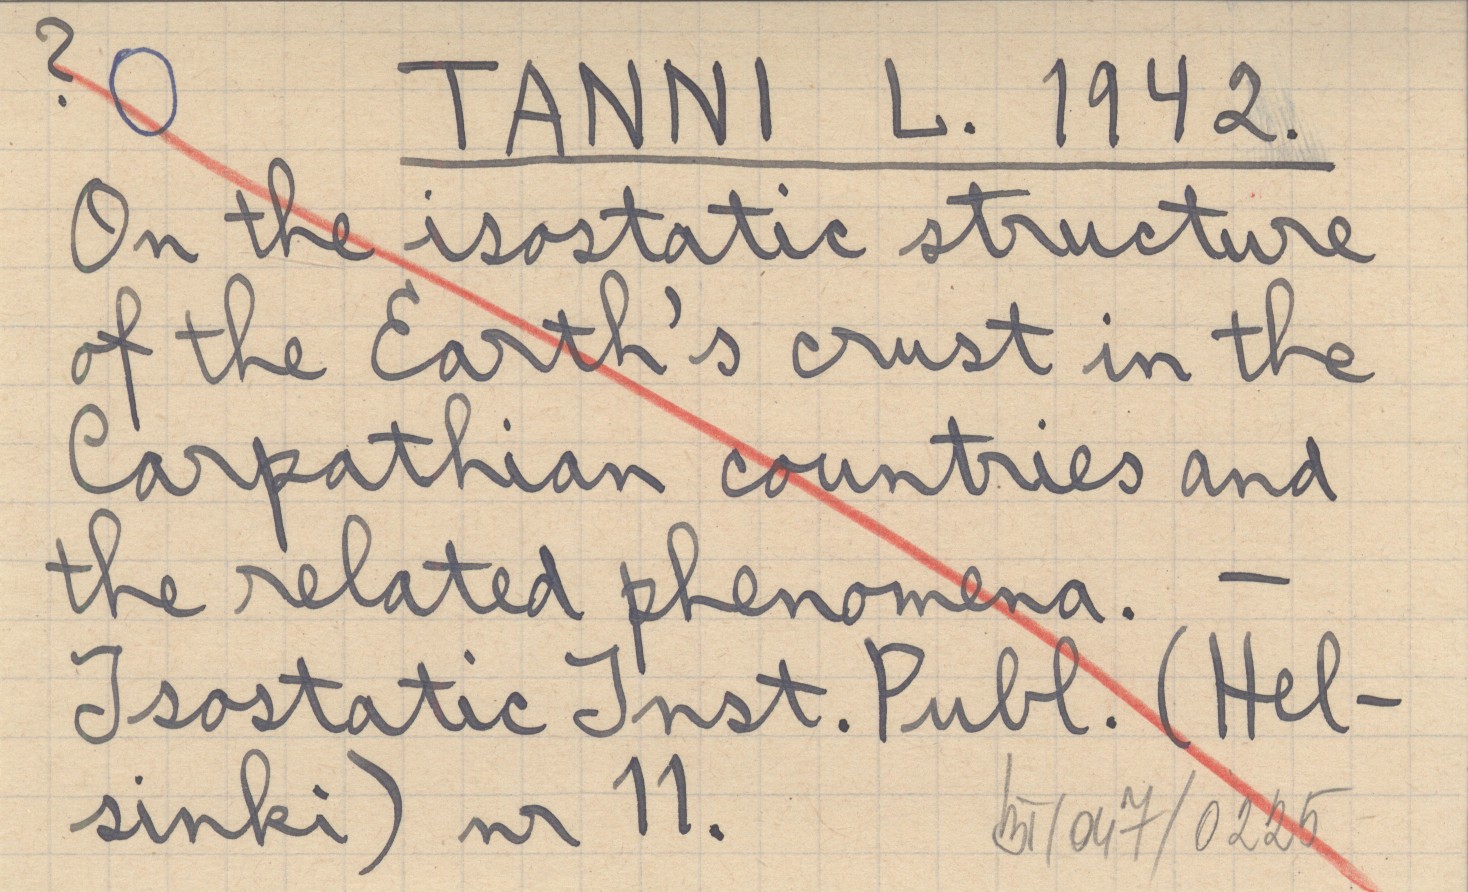 ? O TANNI L. 1942.
On the isostatic structure
of the Earth's crust in the
Carpathian countries and
the related phenomena. —
Isostatic Inst. Publ. (Hel-
sinki) nr 11.
/047/0225